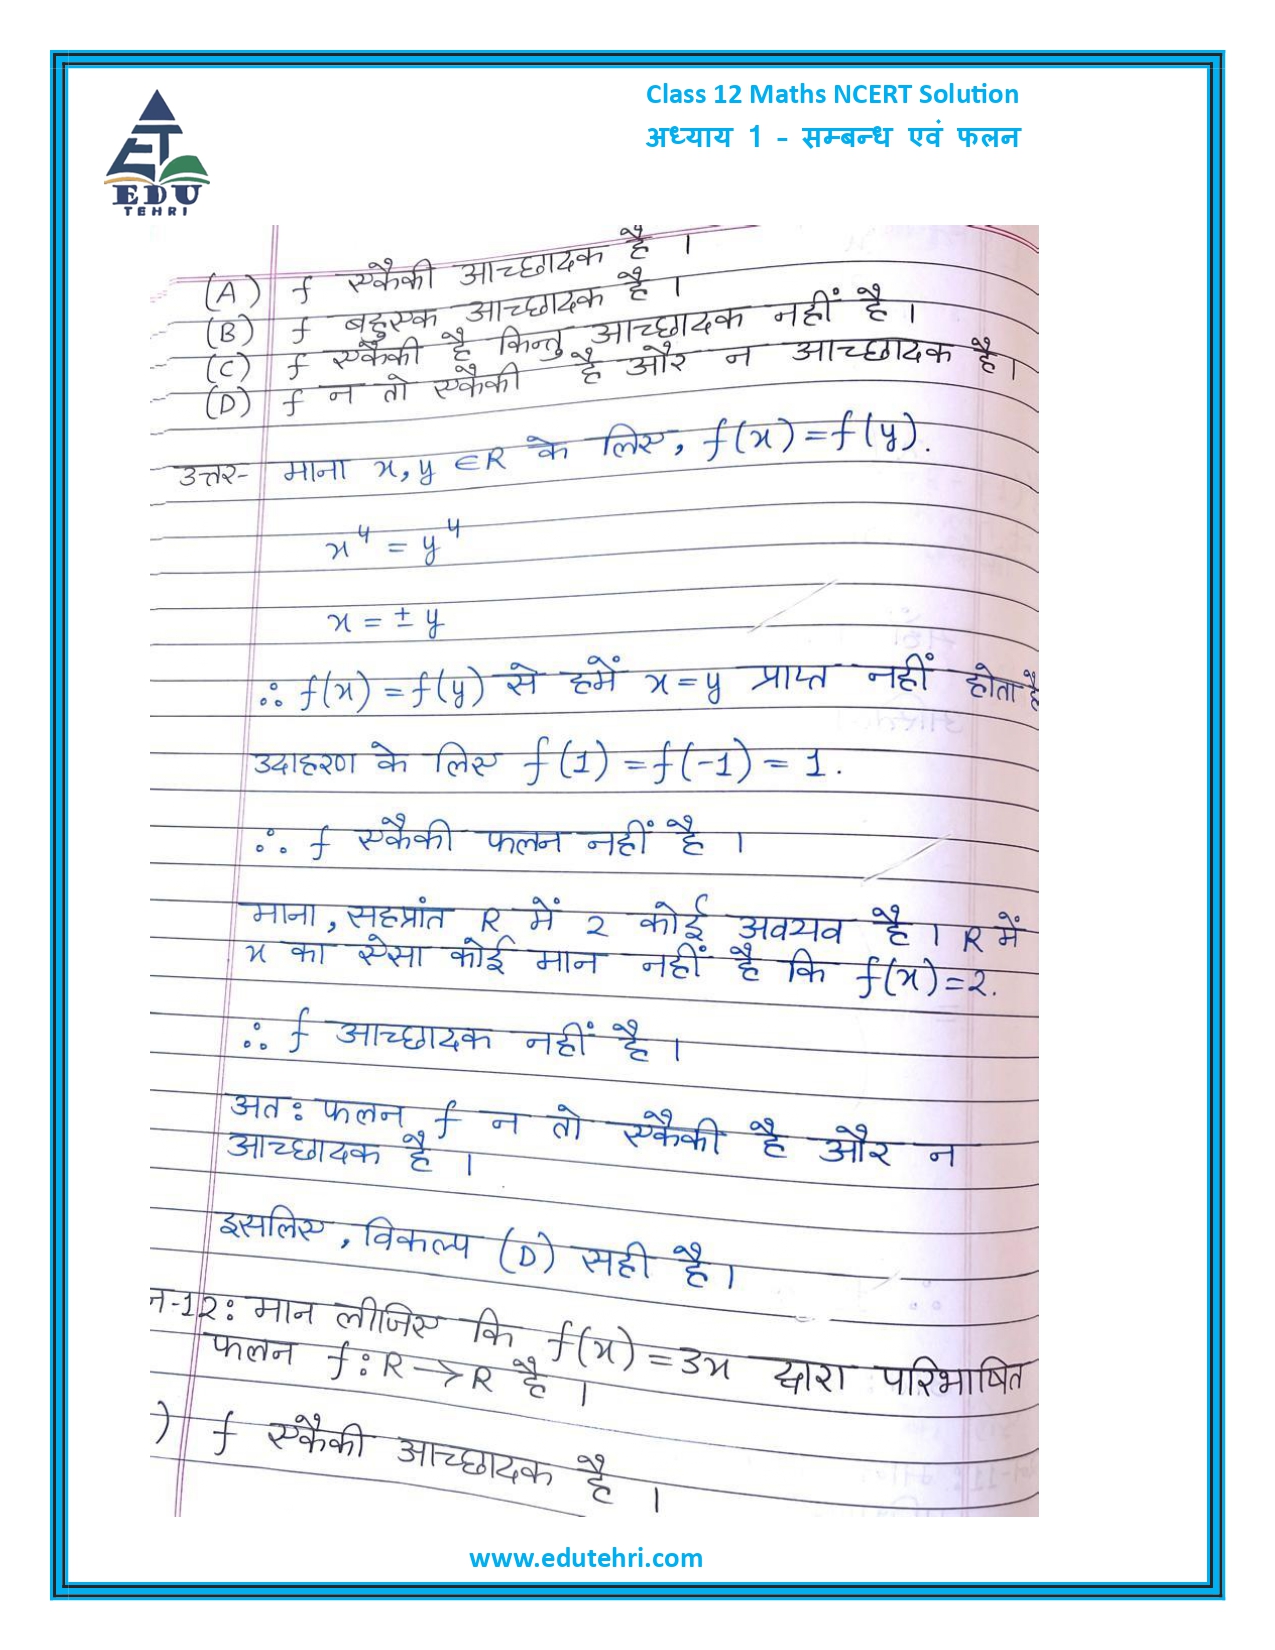 Class 12 Maths NCERT Solution
अध्याय 1 - सम्बन्ध एवं फलन
EDU
TEHRI
(A) f एकैकी आच्छादक है ।
(B) f बहुएक आच्छादक है ।
(C) f एकैकी है किन्तु आच्छादक नहीं है ।
(D) f न तो एकैकी है और न आच्छादक है ।
उत्तर- माना x, y ∈ R के लिए, f(x) = f(y).
x⁴ = y⁴
x = ± y
∴ f(x) = f(y) से हमें x = y प्राप्त नहीं होता है
उदाहरण के लिए f(1) = f(-1) = 1.
∴ f एकैकी फलन नहीं है ।
माना, सहप्रांत R में 2 कोई अवयव है । R में
x का ऐसा कोई मान नहीं है कि f(x) = 2.
∴ f आच्छादक नहीं है ।
अतः फलन f न तो एकैकी है और न
आच्छादक है ।
इसलिए, विकल्प (D) सही है ।
न-12: मान लीजिए कि f(x) = 3x द्वारा परिभाषित
फलन f : R → R है ।
) f एकैकी आच्छादक है ।
www.edutehri.com